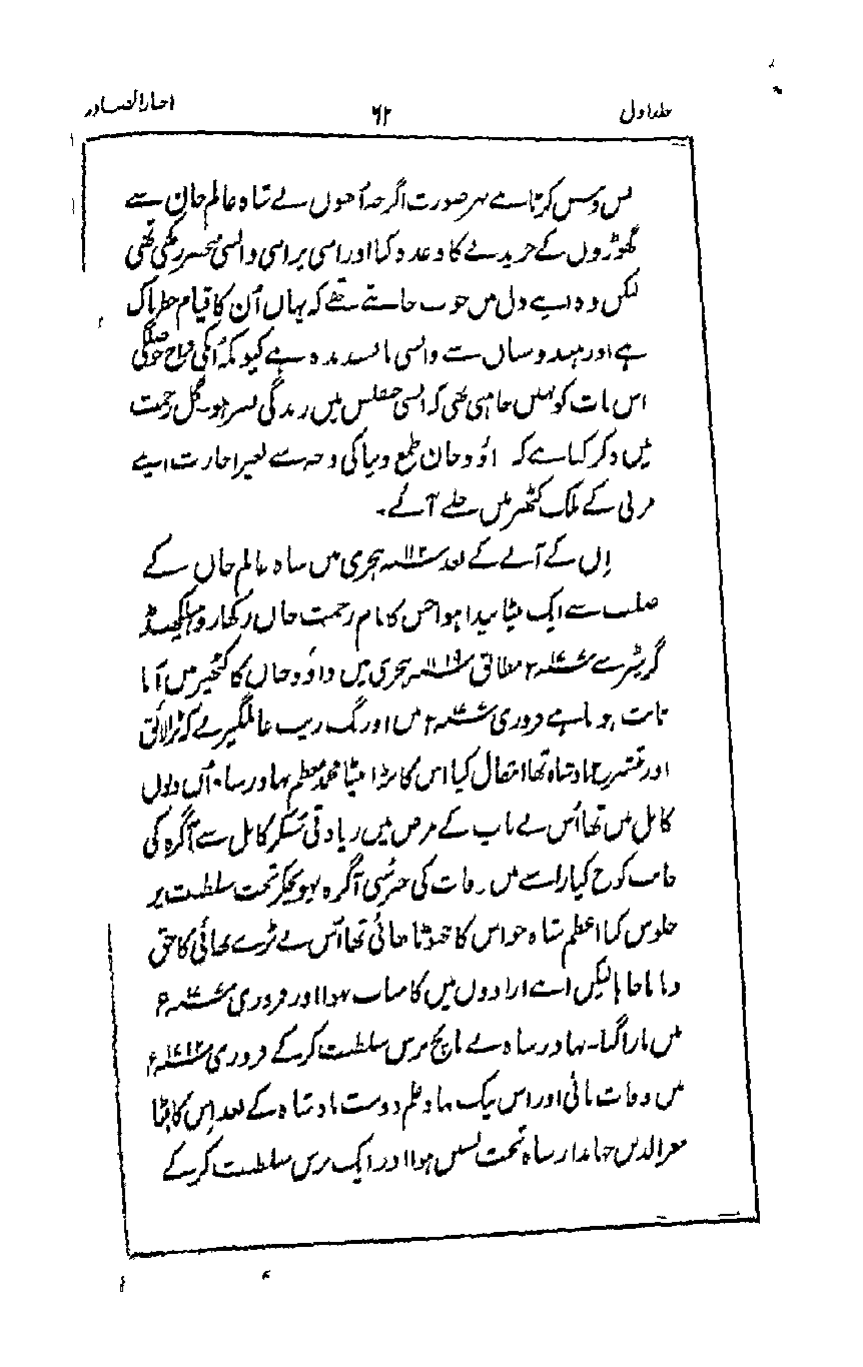 جلد اول ۶۲ اخبار الصنادید
پس و پیش کرتا ہے بہر صورت اگرچہ اُنھوں نے شاہ عالم خان سے
گھوڑوں کے خریدنے کا وعدہ کیا اور اسی پر اپنی واپسی منحصر رکھی تھی
لیکن وہ اپنے دل میں خوب جانتے تھے کہ یہاں اُن کا قیام خطرناک
ہے اور ہندوستان سے واپسی ناپسندیدہ ہے کیونکہ اُنکی فراخ حوصلگی
اس بات کو نہیں چاہتی تھی کہ ایسی مفلسی میں زندگی بسر ہو۔ گل رحمت
میں ذکر کیا ہے کہ داؤد خان طمع دنیا کی وجہ سے بغیر اجازت اپنے
مربی کے ملک کٹھر میں چلے آئے۔
اِن کے آنے کے بعد ۱۱۲۰ ہجری میں شاہ عالم خاں کے
صلب سے ایک بیٹا پیدا ہوا جس کا نام رحمت خاں رکھا روہیلکھنڈ
گزیٹیر سے ۱۷۰۷ء مطابق ۱۱۱۹ ہجری میں داؤد خاں کا کٹھیر میں آنا
ثابت ہوتا ہے فروری ۱۷۰۷ء میں اورنگ زیب عالمگیر نے کہ بڑا لائق
اور متشرع بادشاہ تھا انتقال کیا اس کا بڑا بیٹا محمد معظم بہادر شاہ اُن دنوں
کابل میں تھا اُس نے باپ کے مرض میں زیادتی سنکر کابل سے آگرہ کی
جانب کوچ کیا راستے میں وفات کی خبر سُنی آگرہ پہونچکر تخت سلطنت پر
جلوس کیا اعظم شاہ جو اس کا چھوٹا بھائی تھا اُس نے بڑے بھائی کا حق
دبانا چاہا لیکن اپنے ارادوں میں کامیاب نہوا اور فروری ۱۷۰۷ء
میں مارا گیا۔ بہادر شاہ نے پانچ برس سلطنت کرکے فروری ۱۷۱۲ء
میں وفات پائی اور اس نیک نہاد علم دوست بادشاہ کے بعد اِس کا بیٹا
معز الدین جہاندار شاہ تخت نشین ہوا اور ایک برس سلطنت کرکے